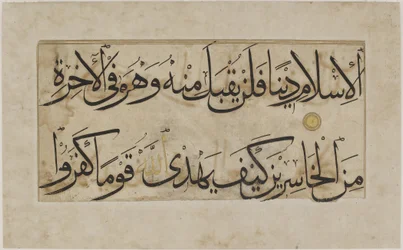 الْإِسْلَامِ دِينًا فَلَنْ يُقْبَلَ مِنْهُ وَهُوَ فِي الْآخِرَةِ
مِنَ الْخَاسِرِينَ كَيْفَ يَهْدِي اللَّهُ قَوْمًا كَفَرُوا